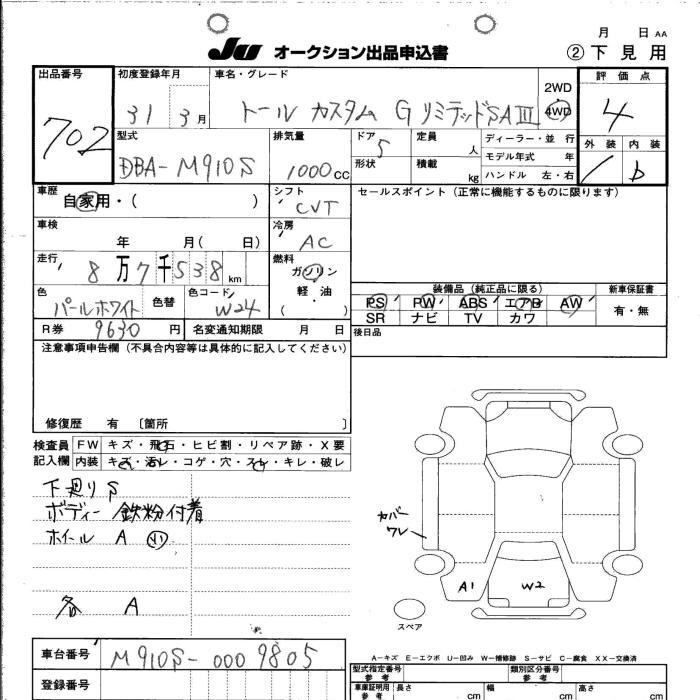 月 日 AA
JU オークション出品申込書 ②下見用
出品番号 702
初度登録年月 31 3月
車名・グレード トール カスタム G リミテッドSAⅢ
2WD
4WD
評価点 4
外装 内装 b
型式 DBA-M910S
排気量 1000cc
ドア 5
形状
定員 人
積載 kg
ディーラー・並行
モデル年式 年
ハンドル 左・右
車歴 自家用・( )
シフト CVT
セールスポイント (正常に機能するものに限ります)
車検 年 月( 日)
冷房 AC
走行 8万7千538km
燃料 ガソリン
軽・油
( )
色 パールホワイト 色替
色コード W24
R券 9630円 名変通知期限 月 日
装備品 (純正品に限る) 新車保証書
PS PW ABS エアB AW 有・無
SR ナビ TV カワ
後日品
注意事項申告欄 (不具合内容等は具体的に記入してください)
修復歴 有 〔箇所 〕
検査員 FW キズ・飛石・ヒビ割・リペア跡・X要
記入欄 内装 キズ・汚レ・コゲ・穴・スレ・キレ・破レ
下廻りS
ボディー 鉄粉付着
ホイール A
各 A
カバー
ワレ
A1 W2
スペア
A-キズ E-エクボ U-凹み W-補修跡 S-サビ C-腐食 XX-交換済
車台番号 M910S-0009805
登録番号
型式指定番号 参考
類別区分番号 参考
車庫証明用 参考 長さ cm 幅 cm 高さ cm